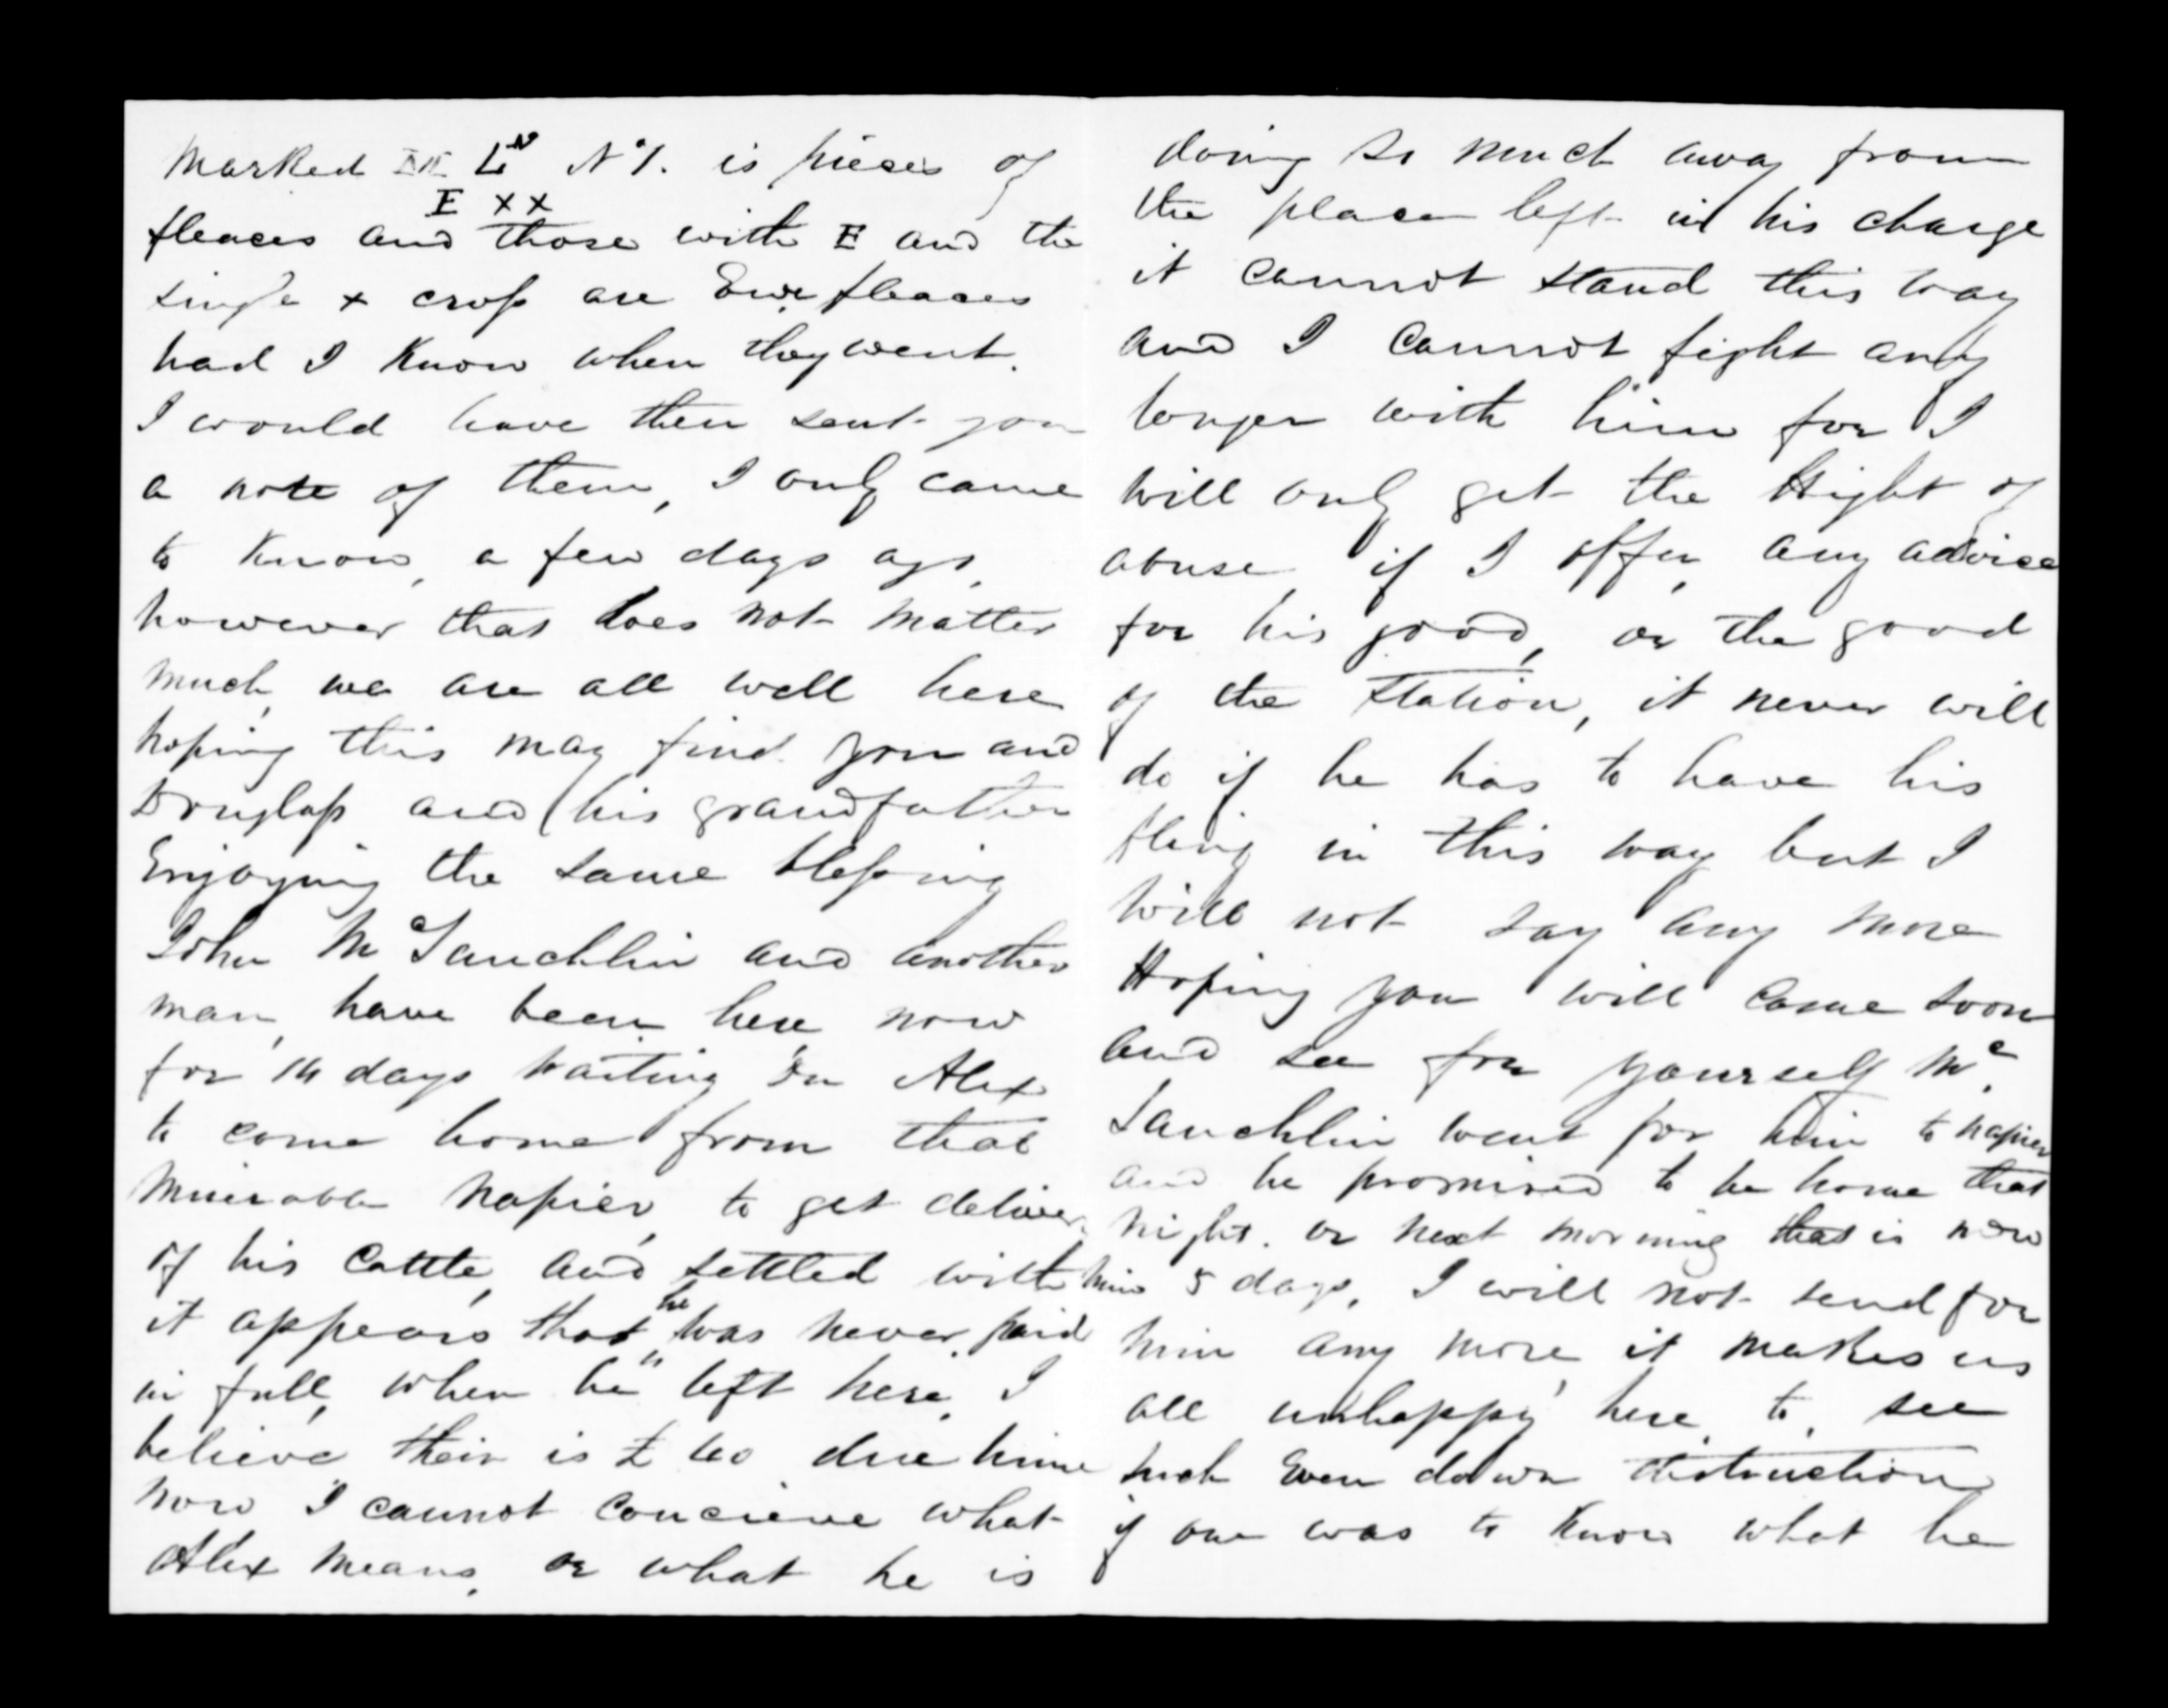 Marked LN No 1. is pieces of
E x x
fleaces and those with E and the
single x crop are Ewe fleaces
had I Know when they went.
I would have then sent you
a note of them, I only came
to Know, a few days ago,
however that does not matter
much, we are all well here
hoping this may find you and
Douglass and his grandfather
Enjoying the same blessing
John McLauchlin and another
man, have been here, now
for 14 days waiting on Alex
to come home from that
miserable napier, to get deliver
of his Cattle, and settled with him
it appears that he was never paid
in full, when he left here, I
believe their is £ 60 due him
now I cannot concieve what
Alex means, or what he is
doing so much away from
the place left in his charge
it cannot stand this way
and I cannot fight any
longer with him for I
will only get the Hight of
abuse if I offer, any advice
for his good, or the good
of the Station, it never will
do if he has to have his
fling in this way but I
will not say any more
Hoping you will come soon
and see for yourself Mc
Lauchlin went for him to napier
and he promised to be home that
night. or next morning that is now
5 days, I will not send for
him any more, it makes us
all unhappy here, to, see
such Even down distruction
if one was to Know what he